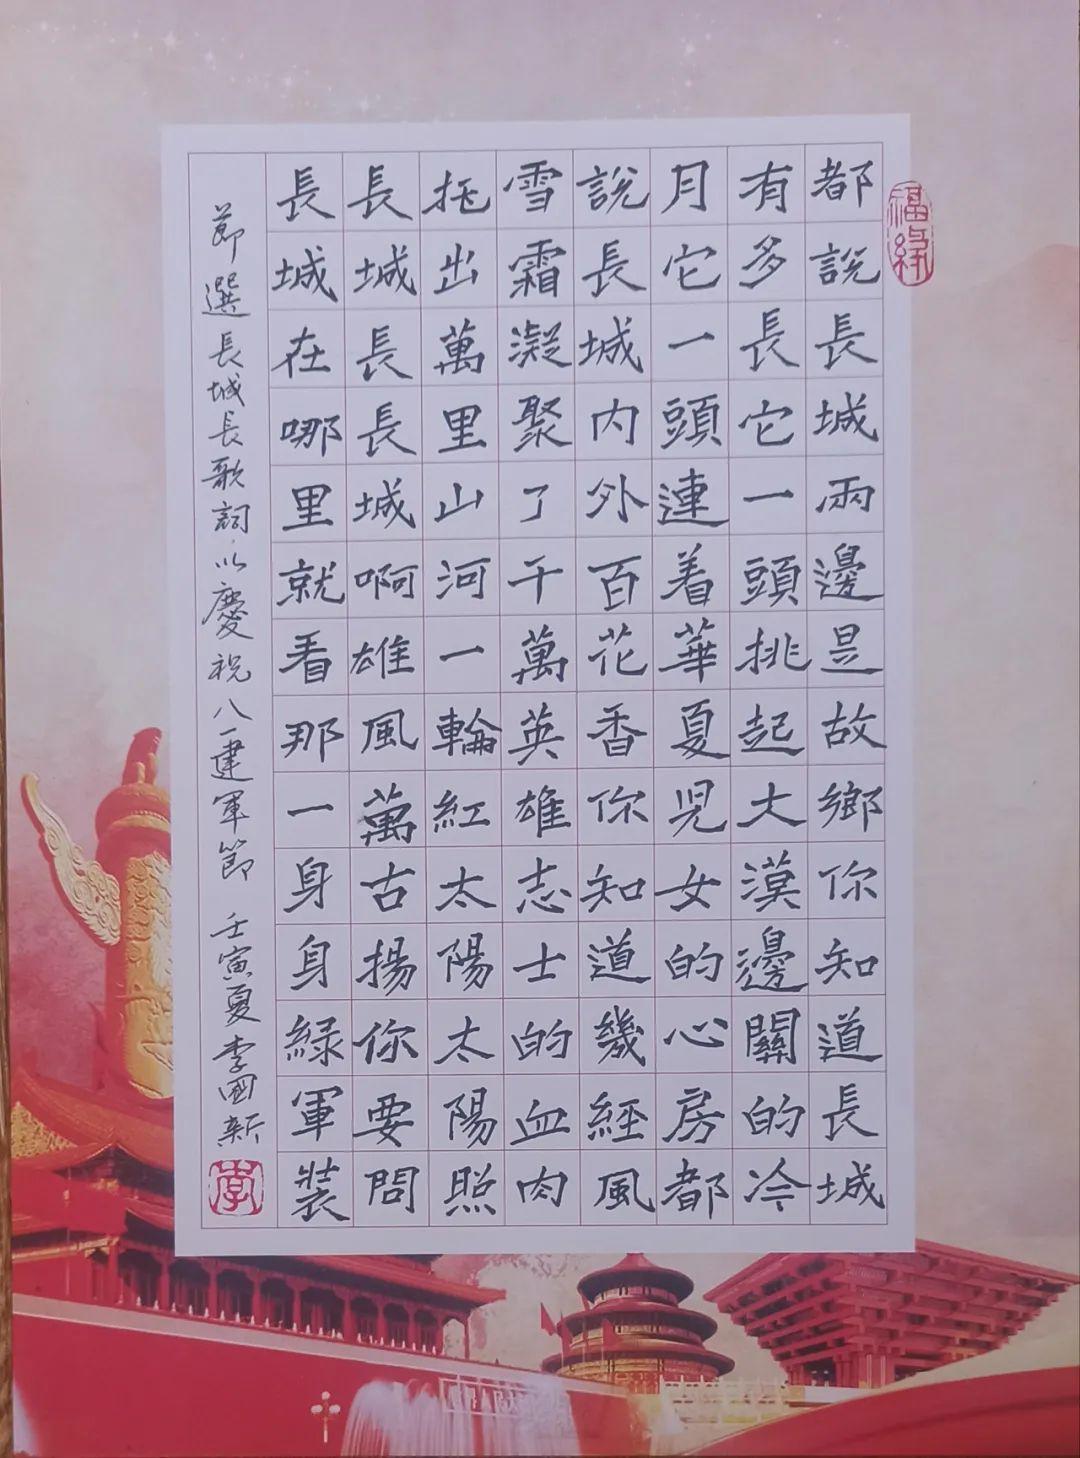 都說長城兩邊是故鄉你知道長城
有多長它一頭挑起大漠邊關的冷
月它一頭連着華夏兒女的心房都
說長城內外百花香你知道幾經風
雪霜凝聚了千萬英雄志士的血肉
托出萬里山河一輪紅太陽太陽照
長城長長城啊雄風萬古揚你要問
長城在哪里就看那一身身緑軍裝
節選長城長歌詞以慶祝八一建軍節 壬寅夏 李國新
福緣
李